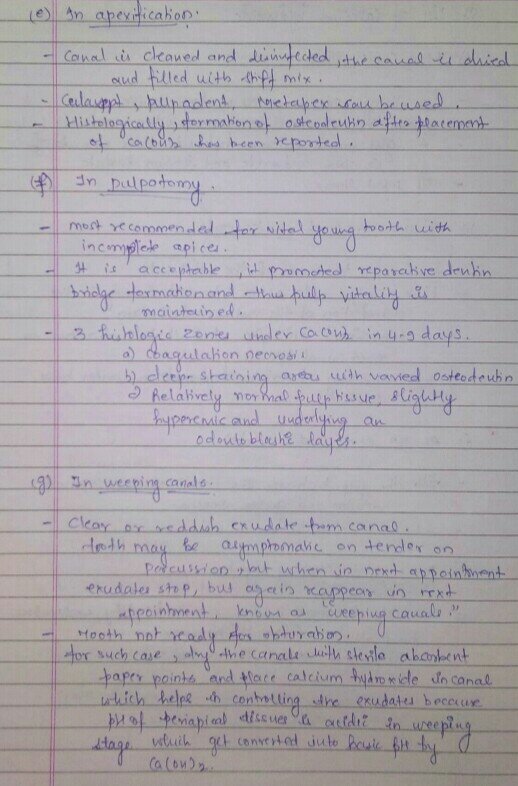 (e) In apexification.
- Canal is cleaned and disinfected, the canal is dried
and filled with stiff mix.
- pulpadent, metapex can be used.
- Histologically, formation of osteodentin after placement
of Ca(OH)2 has been reported.
(f) In pulpotomy.
- most recommended for vital young tooth with
incomplete apices.
- It is acceptable, it promoted reparative dentin
bridge formation and thus pulp vitality is
maintained.
- 3 histologic zones under Ca(OH)2 in 4-9 days.
a) Coagulation necrosis
b) deep staining areas with varied osteodentin
c) Relatively normal pulp tissue, slightly
hyperemic and underlying an
odontoblastic layer.
(g) In weeping canals.
- Clear or reddish exudate from canal.
tooth may be asymptomatic or tender on
percussion, but when in next appointment
exudates stop, but again reappear in next
appointment, known as "weeping canals."
- Tooth not ready for obturation.
for such case, dry the canals with sterile absorbent
paper points and place calcium hydroxide in canal
which helps in controlling the exudates because
pH of periapical tissues is acidic in weeping
stage which get converted into basic pH by
Ca(OH)2.